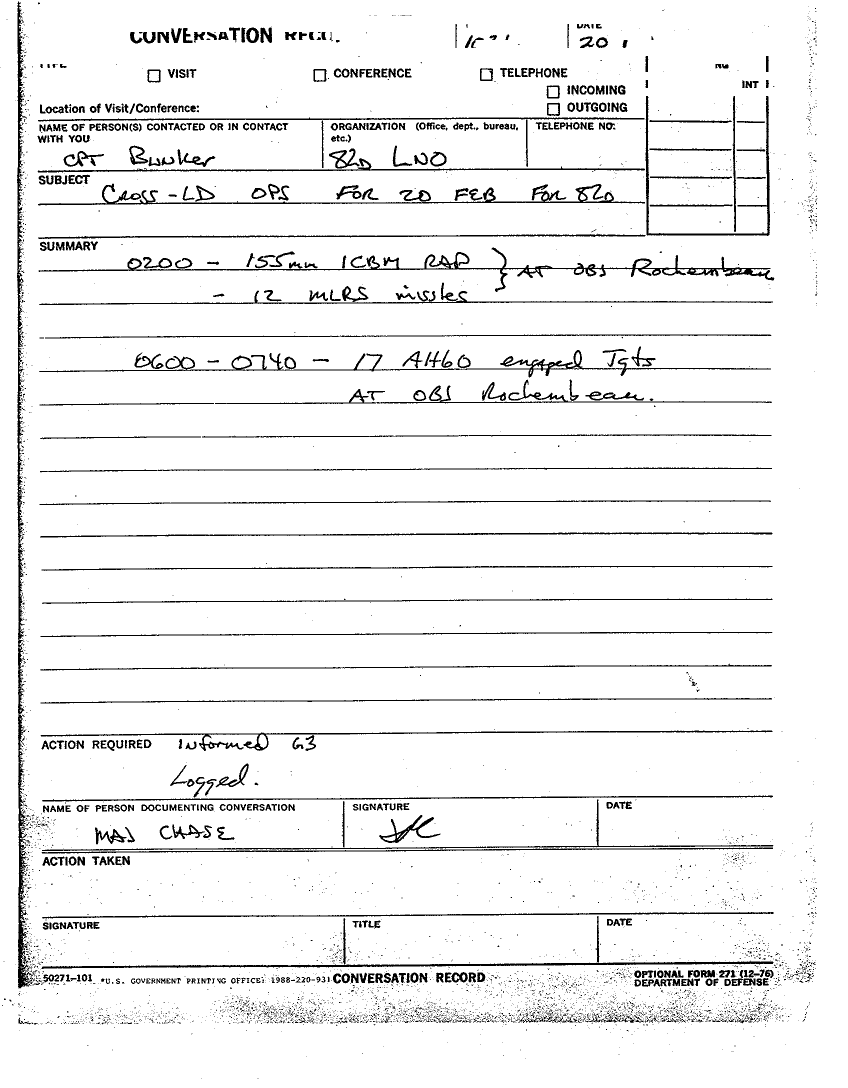 CONVERSATION
DATE
20
VISIT
CONFERENCE
TELEPHONE
INCOMING
OUTGOING
INT
Location of Visit/Conference:
NAME OF PERSON(S) CONTACTED OR IN CONTACT WITH YOU
CPT Bunker
ORGANIZATION (Office, dept., bureau, etc.)
82D LNO
TELEPHONE NO:
SUBJECT
CROSS-LD OPS FOR 20 FEB FOR 82D
SUMMARY
0200 - 155mm ICBM RAP } AT OBJ Rochembeau
- 12 MLRS missles
0600 - 0740 - 17 AH60 engaged Tgts
AT OBJ Rochembeau.
ACTION REQUIRED Informed G3
Logged.
NAME OF PERSON DOCUMENTING CONVERSATION
MAJ CHASE
SIGNATURE
DATE
ACTION TAKEN
SIGNATURE
TITLE
DATE
50271-101 *U.S. GOVERNMENT PRINTING OFFICE: 1988-220-931 CONVERSATION RECORD
OPTIONAL FORM 271 (12-76)
DEPARTMENT OF DEFENSE